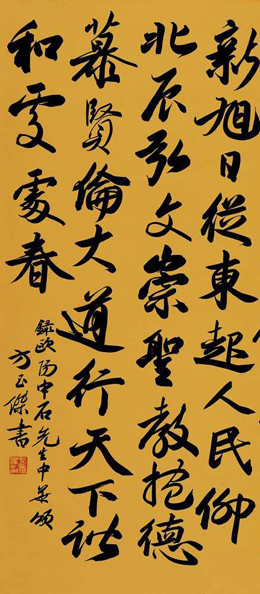 新旭日從東起人民仰
北辰弘文崇聖教抱德
慕賢倫大道行天下諧
和處處春
錄歐陽中石先生中華頌
方正傑書